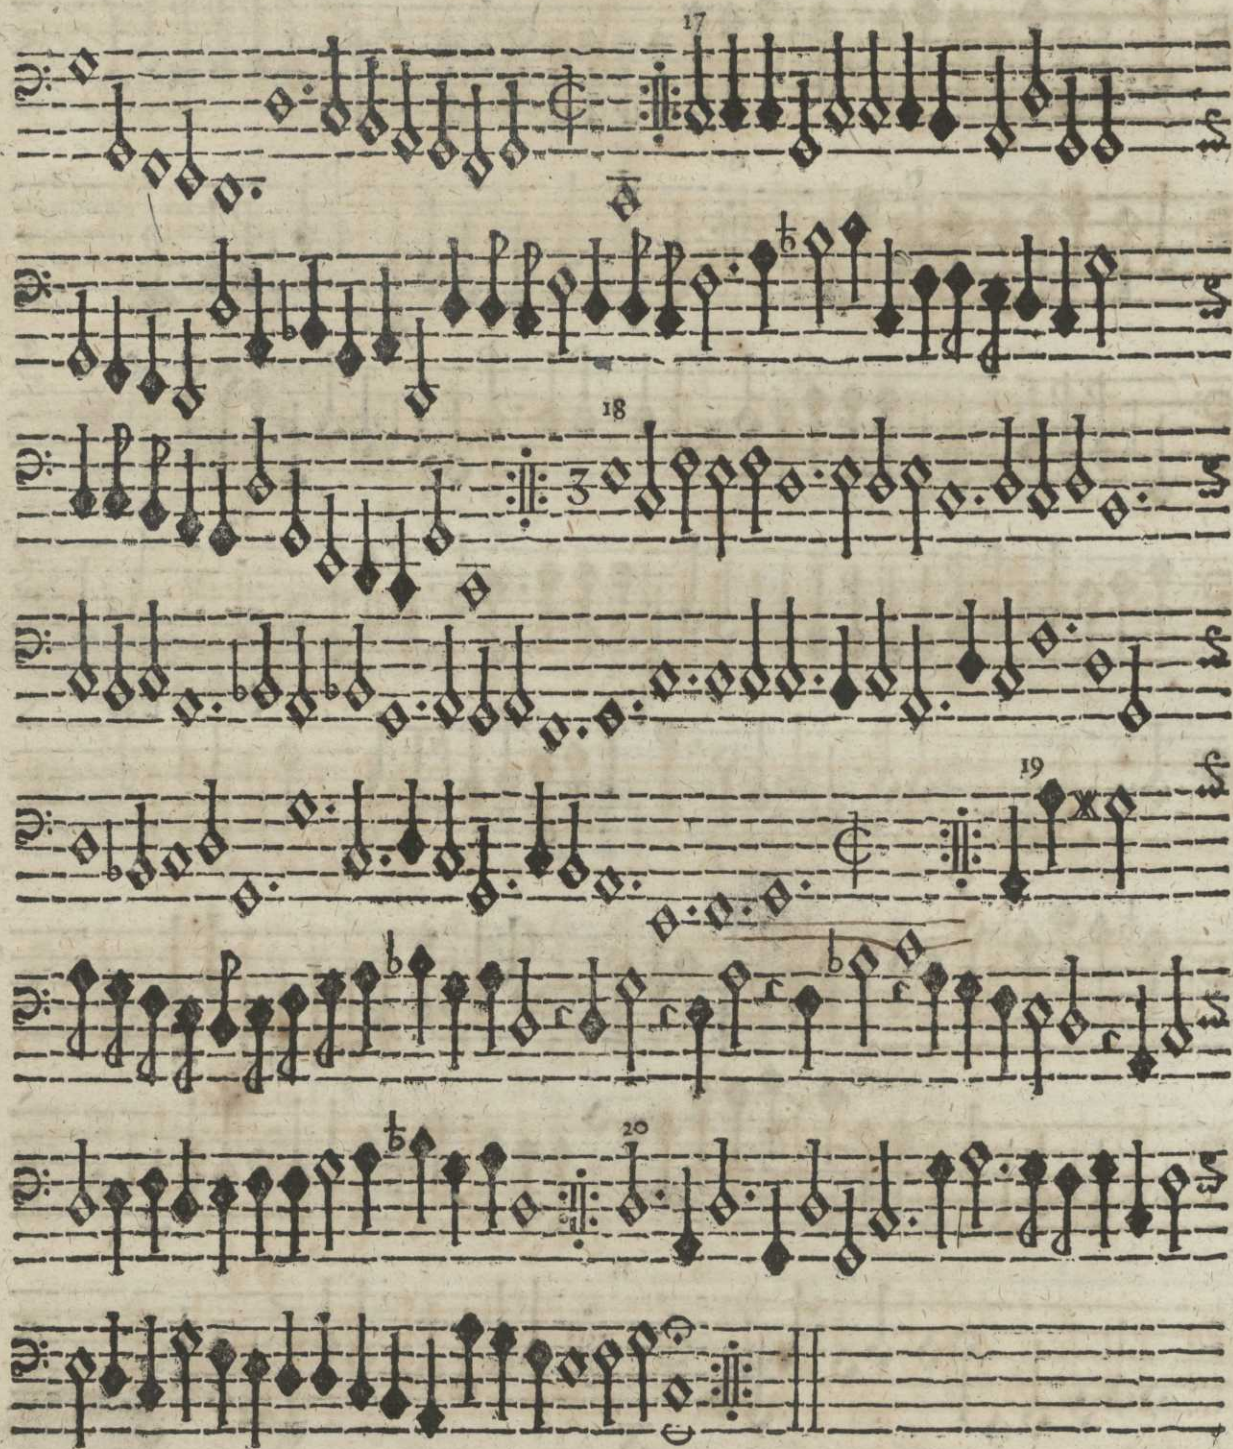 17
18
3
19
20